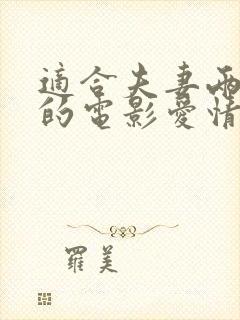 適合夫妻兩
的電影愛情
羅美